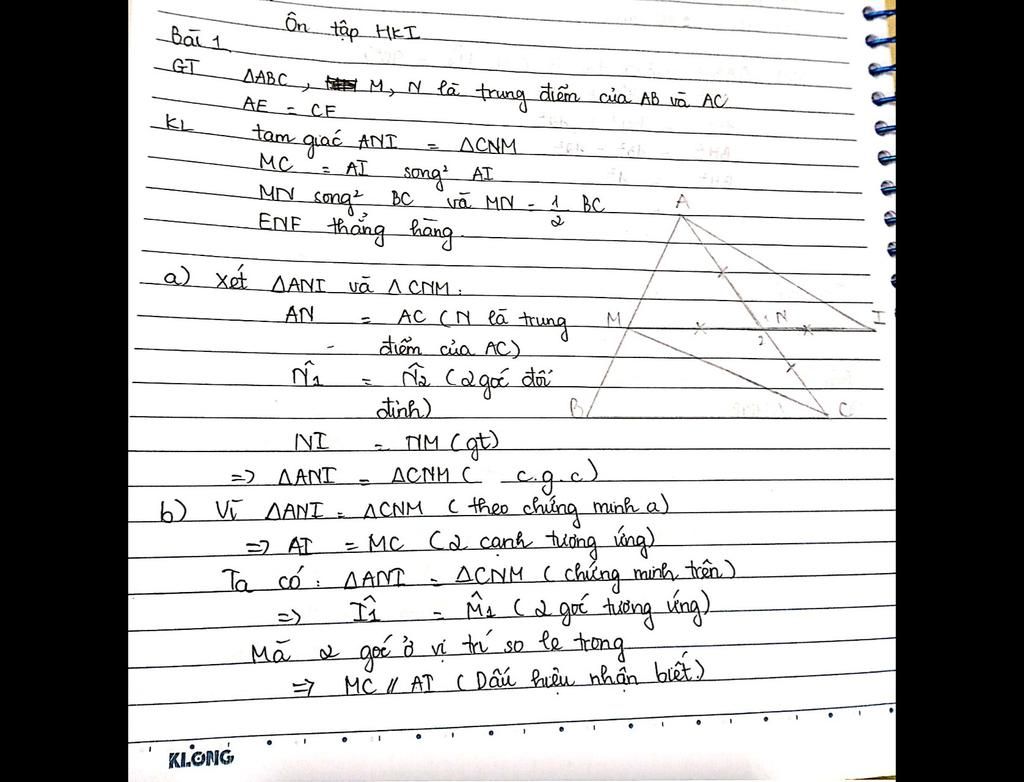 Ôn tập HKI
Bài 1
GT ΔABC, M, N là trung điểm của AB và AC
AE = CF
KL tam giác ANI = ΔCNM
MC = AI song² AI
MN song² BC và MN = 1/2 BC
ENF thẳng hàng.
a) Xét ΔANI và ΔCNM:
AN = AC (N là trung
điểm của AC)
N̂1 = N̂2 (2 góc đối
đỉnh)
NI = NM (gt)
=> ΔANI = ΔCNM ( c.g.c)
b) Vì ΔANI = ΔCNM (theo chứng minh a)
=> AI = MC (2 cạnh tương ứng)
Ta có: ΔANI = ΔCNM (chứng minh trên)
=> Î1 = M̂1 (2 góc tương ứng)
Mà 2 góc ở vị trí so le trong
=> MC // AI (Dấu hiệu nhận biết.)
A
M
1 N
I
2
B
C
KLONG